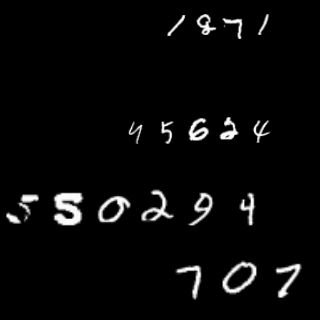 1871
45624
550294
707